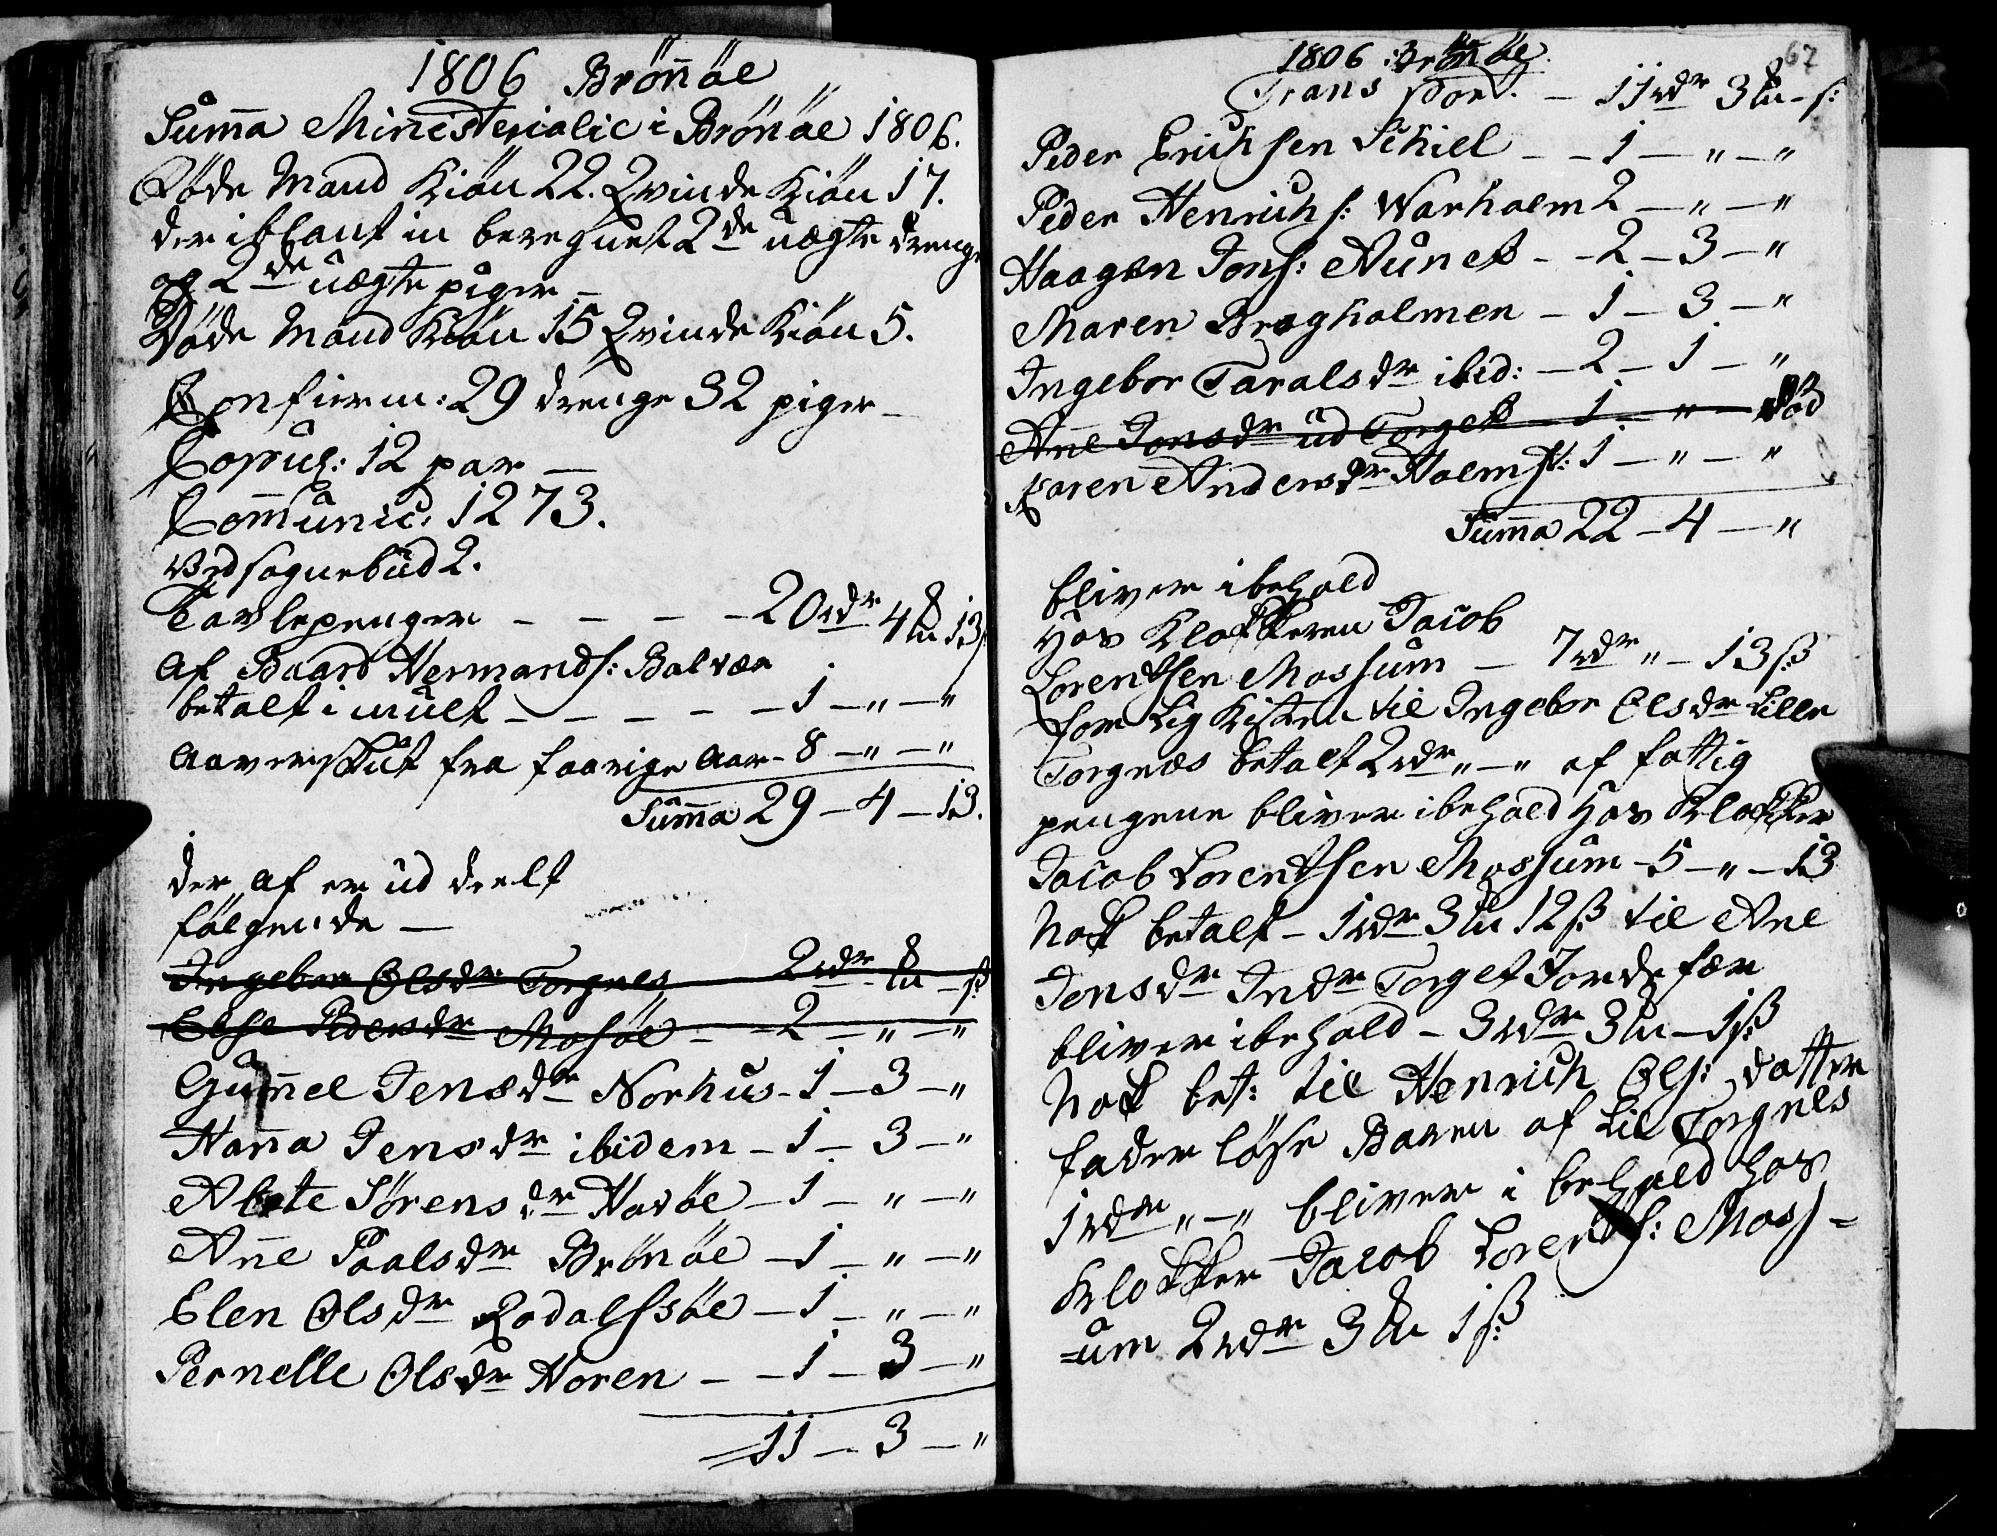 1806 Brönöe
Summa Ministerialic i Brönöe 1806.
Föde Mand Kiön 22. Qvinde Kiön 17.
der iblant in beregnet 2de uægte drenge
og 2de uægte piger —
Döde Mand Kiön 15 Qvinde Kiön 5.
Confierm: 29 drenge 32 piger —
Copul: 12 par —
Communic: 1273.
Vedsognebud 2.
Tavlepenger - - - - 20 rdr 4 m 13 s
af Baard Hermands: Bolvær
betalt i mult - - - - - 1 — " — "
aaverskut fra forrige aar - 8 — " — "
Summa 29 — 4 — 13.
der af er ud deelt
fölgende —
Ingebor Olsdr Torgnes 2 rdr - m - s
Else Pedersdr Mosöe - - 2 — " — "
Gummel Jensdr Norhus - 1 — 3 — "
Hanna Jensdr ibidem - 1 — 3 — "
Abete Sörensdr Havöe - 1 — " — "
Anne Paalsdr Brönöe — 1 — " — "
Elen Olsdr Rodalssöe — 1 — " — "
Pernelle Olsdr Horen - - 1 — 3 — "
11 — 3 — "
67
1806 Brönöe.
Transport. — 11 rdr 3 m - s:
Peder Erichsen Schiel - - 1 — " — "
Peder Henrichs: Warholm 2 — " — "
Haagen Jons: Aunet - - 2 — 3 — "
Maren Bragholmen - 1 — 3 — "
Ingebor Taralsdr ibid: - 2 — 1 — "
Anne Jonsdr ud Torget 1 - " - död
Karen Andersdr Holmst: 1 — " — "
Summa 22 — 4 — "
bliver i behold
hos Klokkeren Jacob
Lorentsen Mossum — 7 rdr " - 13 s
for Lig Kisten til Ingebor Olsdr Lille
Torgnæs betalt 2 rdr " — " af fattig
pengene bliver i behold hos Klokker
Jacob Lorentsen Mossum - 5 — " — 13
Nok betalt - 1 rdr 3 m 12 s til Ane
Jensdr Indr Torget Jordefær
bliver i behold — 3 rdr 3 m - 1 s
Nok bet: til Henrich Ols: datter
fader löse Baren af Lil Torgnes
1 rdr " — " bliver i behold hos
Klokker Jacob Lorents: Moss-
-um 2 rdr 3 m 1 s